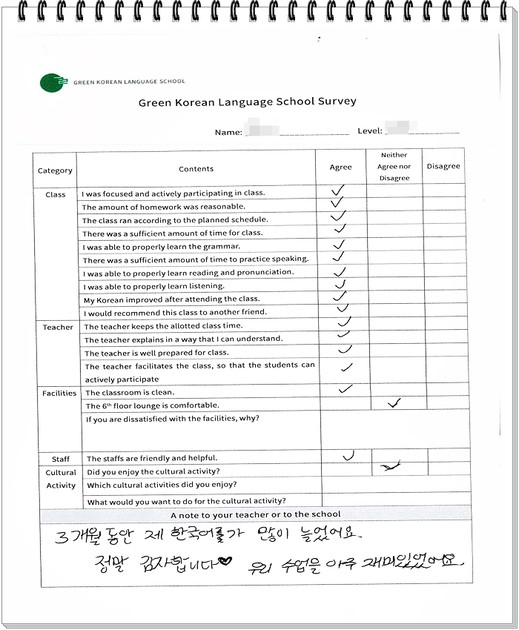 GREEN KOREAN LANGUAGE SCHOOL
Green Korean Language School Survey
Name: Level:
Category Contents Agree Neither Agree nor Disagree Disagree
Class I was focused and actively participating in class.
The amount of homework was reasonable.
The class ran according to the planned schedule.
There was a sufficient amount of time for class.
I was able to properly learn the grammar.
There was a sufficient amount of time to practice speaking.
I was able to properly learn reading and pronunciation.
I was able to properly learn listening.
My Korean improved after attending the class.
I would recommend this class to another friend.
Teacher The teacher keeps the allotted class time.
The teacher explains in a way that I can understand.
The teacher is well prepared for class.
The teacher facilitates the class, so that the students can
actively participate
Facilities The classroom is clean.
The 6th floor lounge is comfortable.
If you are dissatisfied with the facilities, why?
Staff The staffs are friendly and helpful.
Cultural Did you enjoy the cultural activity?
Activity Which cultural activities did you enjoy?
What would you want to do for the cultural activity?
A note to your teacher or to the school
3개월 동안 제 한국어를가 많이 늘었어요.
정말 감사합니다♥ 우리 수업을 아주 재미있었어요.